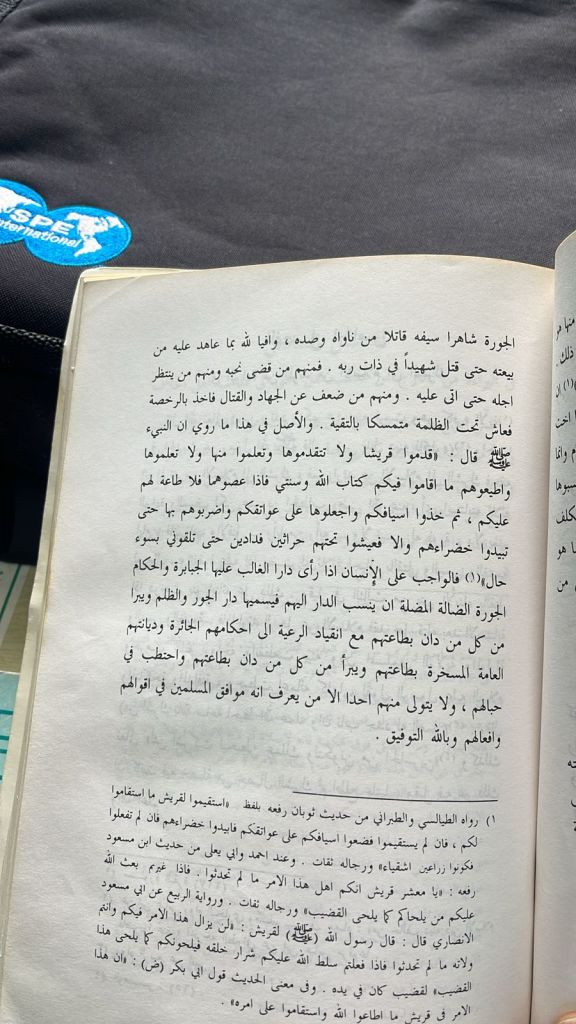 SPE
International
الجورة شاهرا سيفه قاتلا من ناواه وصده ، وافيا لله بما عاهد عليه من
بيعته حتى قتل شهيداً في ذات ربه . فمنهم من قضى نحبه ومنهم من ينتظر
اجله حتى اتى عليه . ومنهم من ضعف عن الجهاد والقتال فاخذ بالرخصة
فعاش تحت الظلمة متمسكا بالتقية . والأصل في هذا ما روي ان النبيء
ﷺ قال : «قدموا قريشا ولا تتقدموها وتعلموا منها ولا تعلموها
واطيعوهم ما اقاموا فيكم كتاب الله وسنتي فاذا عصوهما فلا طاعة لهم
عليكم ، ثم خذوا اسيافكم واجعلوها على عواتقكم واضربوهم بها حتى
تبيدوا خضراءهم والا فعيشوا تحتهم حراثين فدادين حتى تلقوني بسوء
حال»(١) فالواجب على الإنسان اذا رأى دارا الغالب عليها الجبابرة والحكام
الجورة الضالة المضلة ان ينسب الدار اليهم فيسميها دار الجور والظلم ويبرا
من كل من دان بطاعتهم مع انقياد الرعية الى احكامهم الجائرة وديانتهم
العامة المسخرة بطاعتهم ويبرأ من كل من دان بطاعتهم واحتطب في
حبالهم ، ولا يتولى منهم احدا الا من يعرف انه موافق المسلمين في اقوالهم
وافعالهم وبالله التوفيق .
١) رواه الطيالسي والطبراني من حديث ثوبان رفعه بلفظ «استقيموا لقريش ما استقاموا
لكم ، فان لم يستقيموا فضعوا اسيافكم على عواتقكم فابيدوا خضراءهم فان لم تفعلوا
فكونوا زراعين اشقياء» ورجاله ثقات . وعند احمد وابي يعلى من حديث ابن مسعود
رفعه : «يا معشر قريش انكم اهل هذا الامر ما لم تحدثوا . فاذا غيرتم بعث الله
عليكم من يلحاكم كما يلحى القضيب» ورجاله ثقات . ورواية الربيع عن ابي مسعود
الانصاري قال : قال رسول الله (ﷺ) لقريش : «لن يزال هذا الامر فيكم وانتم
ولاته ما لم تحدثوا فاذا فعلتم سلط الله عليكم شرار خلقه فيلحونكم كما يلحى هذا
القضيب» لقضيب كان في يده . وفى معنى الحديث قول ابي بكر (ض) : «ان هذا
الامر في قريش ما اطاعوا الله واستقاموا على امره» .